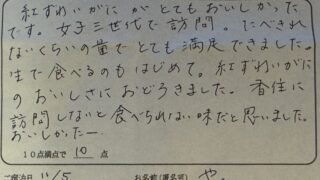 紅ずわいがに が とてもおいしかった
です。女子三世代で訪問。たべきれ
ないくらいの量でとても満足できました。
生で食べるのもはじめて。紅ずわいがに
のおいしさにおどろきました。香住に
訪問しないと食べられない味だと思いました。
おいしかたー
10点満点で 10 点
ご宿泊日 11/5 お名前(匿名可) や